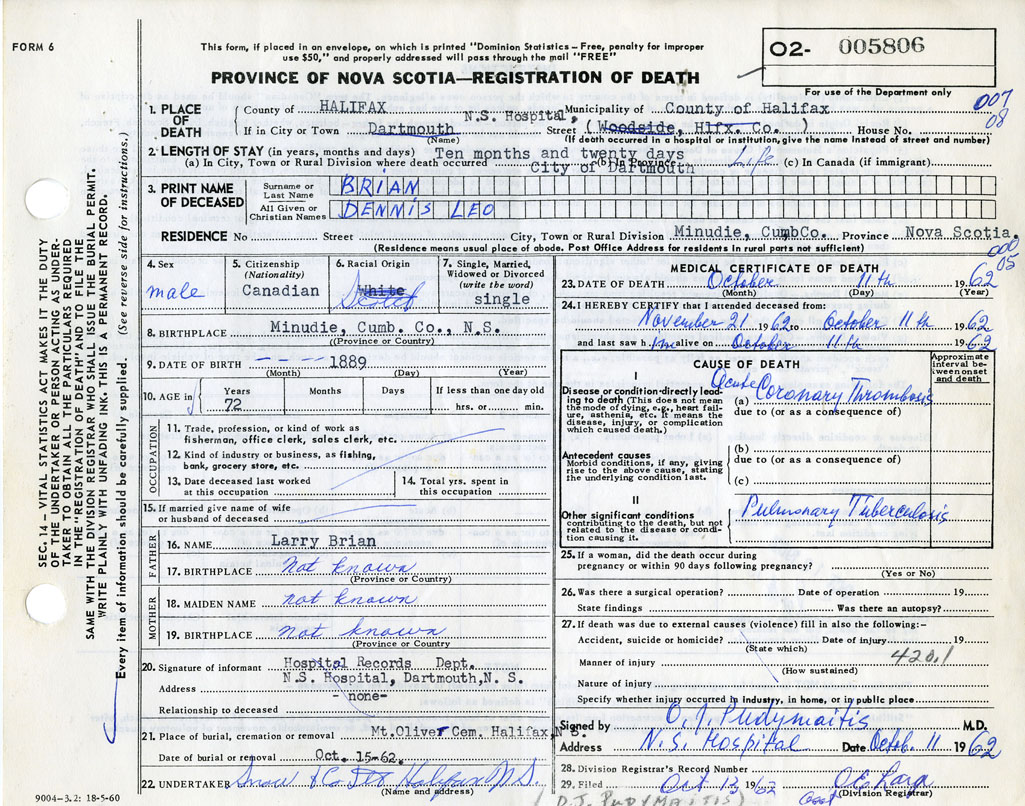 FORM 6
This form, if placed in an envelope, on which is printed "Dominion Statistics—Free, penalty for improper
use $50," and properly addressed will pass through the mail "FREE"
PROVINCE OF NOVA SCOTIA—REGISTRATION OF DEATH
O2- 005806
For use of the Department only
007
08
1. PLACE OF DEATH
County of HALIFAX Municipality of County of Halifax
If in City or Town Dartmouth (Name) N.S. Hospital, Street (Woodside, Hlfx. Co. ) House No.
(If death occurred in a hospital or institution, give the name instead of street and number)
2. LENGTH OF STAY (in years, months and days) Ten months and twenty days
(a) In City, Town or Rural Division where death occurred City of Dartmouth (b) In Province Life (c) In Canada (if immigrant)
3. PRINT NAME OF DECEASED
Surname or Last Name BRIAN
All Given or Christian Names DENNIS LEO
RESIDENCE No Street City, Town or Rural Division Minudie, CumbCo. Province Nova Scotia.
(Residence means usual place of abode. Post Office Address for residents in rural parts not sufficient)
000
05
4. Sex male
5. Citizenship (Nationality) Canadian
6. Racial Origin White Scotch
7. Single, Married, Widowed or Divorced (write the word) single
8. BIRTHPLACE Minudie, Cumb. Co., N.S.
(Province or Country)
9. DATE OF BIRTH 1889
(Month) (Day) (Year)
10. AGE in Years 72 Months Days If less than one day old hrs. or min.
OCCUPATION
11. Trade, profession, or kind of work as
fisherman, office clerk, sales clerk, etc.
12. Kind of industry or business, as fishing,
bank, grocery store, etc.
13. Date deceased last worked at this occupation
14. Total yrs. spent in this occupation
15. If married give name of wife
or husband of deceased
FATHER
16. NAME Larry Brian
17. BIRTHPLACE Not known
(Province or Country)
MOTHER
18. MAIDEN NAME not known
19. BIRTHPLACE Not known
(Province or Country)
20. Signature of informant Hospital Records Dept.
Address N.S. Hospital, Dartmouth, N. S.
Relationship to deceased - none-
21. Place of burial, cremation or removal Mt.Olivet Cem. Halifax, N S.
Date of burial or removal Oct. 15-62.
22. UNDERTAKER Snow & Co Ltd Halifax N.S.
(Name and address)
MEDICAL CERTIFICATE OF DEATH
23. DATE OF DEATH October 11th 1962
(Month) (Day) (Year)
24. I HEREBY CERTIFY that I attended deceased from:
November 21 1962 to October 11th 1962
and last saw him alive on October 11th 1962
CAUSE OF DEATH
Approximate interval between onset and death
I
Disease or condition directly leading to death (This does not mean the mode of dying, e.g., heart failure, asthenia, etc. It means the disease, injury, or complication which caused death.)
(a) Acute Coronary Thrombosis
due to (or as a consequence of)
Antecedent causes
Morbid conditions, if any, giving rise to the above cause, stating the underlying condition last.
(b)
due to (or as a consequence of)
(c)
II
Other significant conditions
contributing to the death, but not related to the disease or condition causing it.
Pulmonary Tuberculosis
25. If a woman, did the death occur during
pregnancy or within 90 days following pregnancy?
(Yes or No)
26. Was there a surgical operation? Date of operation 19
State findings Was there an autopsy?
27. If death was due to external causes (violence) fill in also the following:-
Accident, suicide or homicide? Date of injury 19
(State which)
Manner of injury 420.1
(How sustained)
Nature of injury
Specify whether injury occurred in industry, in home, or in public place
Signed by O. J. Pudymaitis M.D.
Address N.S. Hospital Date Octob. 11 1962
28. Division Registrar's Record Number
29. Filed Oct 13 1962
(Division Registrar)
(D.J. PUDYMAITIS)
9004-3.2: 18-5-60
SEC. 14—VITAL STATISTICS ACT MAKES IT THE DUTY
OF THE UNDERTAKER OR PERSON ACTING AS UNDER-
TAKER TO OBTAIN ALL THE PARTICULARS REQUIRED
IN THE "REGISTRATION OF DEATH" AND TO FILE THE
SAME WITH THE DIVISION REGISTRAR WHO SHALL ISSUE THE BURIAL PERMIT.
WRITE PLAINLY WITH UNFADING INK. THIS IS A PERMANENT RECORD.
Every item of information should be carefully supplied. (See reverse side for instructions.)